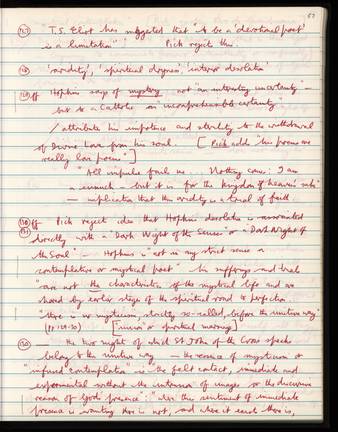 57
(127) T.S. Eliot has suggested that "to be a 'devotional poet'
is a limitation" Pick rejects this.
(128) 'aridity', 'spiritual dryness', 'interior desolation'
(129)ff Hopkins says of mystery not an interesting uncertainty –
but to a Catholic an 'incomprehensible certainty'
/ attribute his impotence and sterility to the withdrawal
of Divine Love from his soul. [Pick adds "his poems are
really love poems"]
"All impulse fails me ... Nothing comes: I am
a eunuch – but it is for the kingdom of heaven's sake"
– implication that the aridity is a trial of faith
(130)ff Pick rejects idea that Hopkins' desolation is associated
directly with a "Dark Night of the Senses" or "a Dark Night of
the Soul" Hopkins is "not in any strict sense a
contemplative or mystical poet" his sufferings and trials
"are not the characteristics of the mystical life and are
shared by earlier stages of the spiritual road to perfection.
"there is no mysticism, strictly so-called, before the unitive way"
(pp 129-30)
the two nights of which St John of the Cross speaks
belong to the unitive way – the essence of mysticism or
"infused contemplation" is the felt contact, immediate and
experimental without the intrusion of images or the discursive
reason of God's presence": "where this sentiment of immediate
presence is wanting there is not, and where it exists there is,